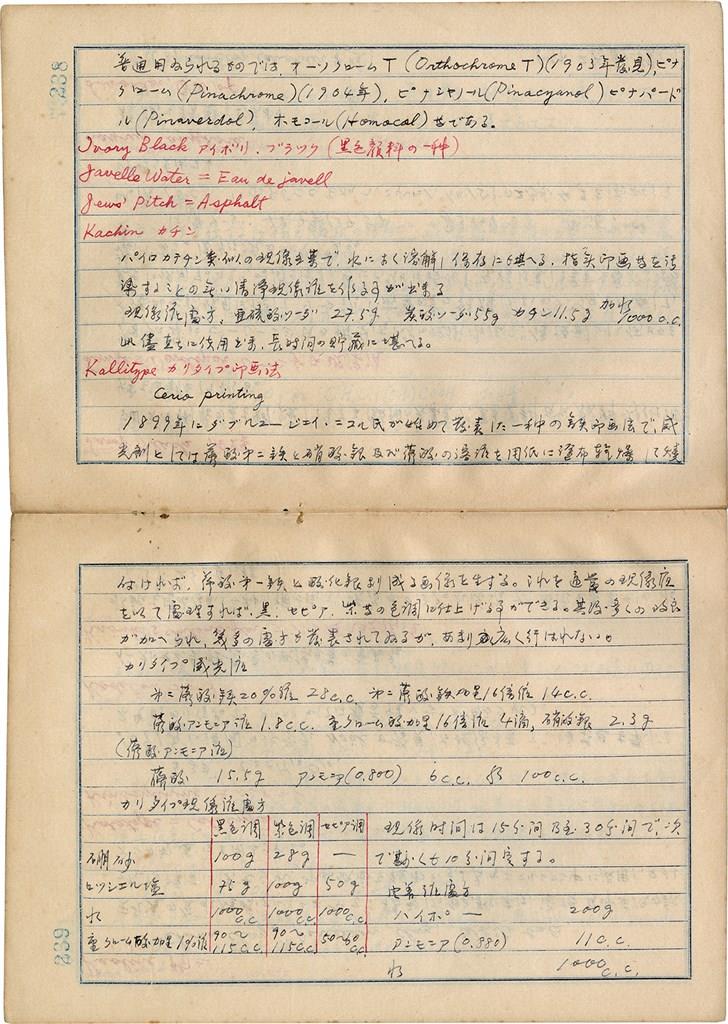 238
普通用ゐられるものでは、オーソクローム T (Orthochrome T)(1903年発見), ピナ
クローム(Pinachrome)(1904年), ピナシヤノール(Pinacyanol) ピナバード
ル(Pinaverdol), ホモコール(Homocol) 等である。
Ivory Black アイボリ.ブラック (黒色顔料の一種)
Javelle Water = Eau de javell
Jews' Pitch = Asphalt
Kachin カチン
パイロカテチン類似の現像主薬で、水によく溶解し保存にも堪へる。指頭印画等を汚
染することの無い清浄現像液を作る事が出来る
現像液処方、亜硫酸ソーダ 27.5g 炭酸ソーダ55g カチン11.5g 加水1000c.c.
此儘直ちに使用出来、長時間の貯蔵に堪へる。
Kallitype カリタイプ印画法
Ceria printing
1899年にダブルユー ジエイ.ニコル氏が始めて発表した一種の鉄印画法で、感
光剤としては蓚酸第二鉄と硝酸銀及び蓚酸の溶液を用紙に塗布乾燥して焼
付ければ、蓚酸第一鉄と酸化銀より成る画像を生ずる。これを適当の現像液
を以て処理すれば、黒、セピア、紫等の色調に仕上げる事ができる。其後多くの改良
が加へられ、幾多の処方も発表されてゐるが、あまり広く行はれない。
カリタイプ感光液
第二蓚酸鉄20%液 28c.c. 第二蓚酸鉄加里16倍液 14c.c.
蓚酸アンモニア液 1.8c.c. 重クローム酸加里16倍液 4滴, 硝酸銀 2.3g
(蓚酸アンモニア液)
蓚酸 15.5g アンモニア(0.800) 6c.c. 水 100c.c.
カリタイプ現像液処方
黒色調 紫色調 セピア調 現像時間は15分間乃至30分間で、次
硼砂 100g 28g — で尠くも10分間定する。
ロッシエル塩 75g 100g 50g 定着液処方
水 1000c.c. 1000c.c. 1000c.c. ハイポー 200g
重クローム酸加里1%液 90〜115c.c. 90〜115c.c. 50〜60c.c. アンモニア(0.880) 11c.c.
水 1000c.c.
239